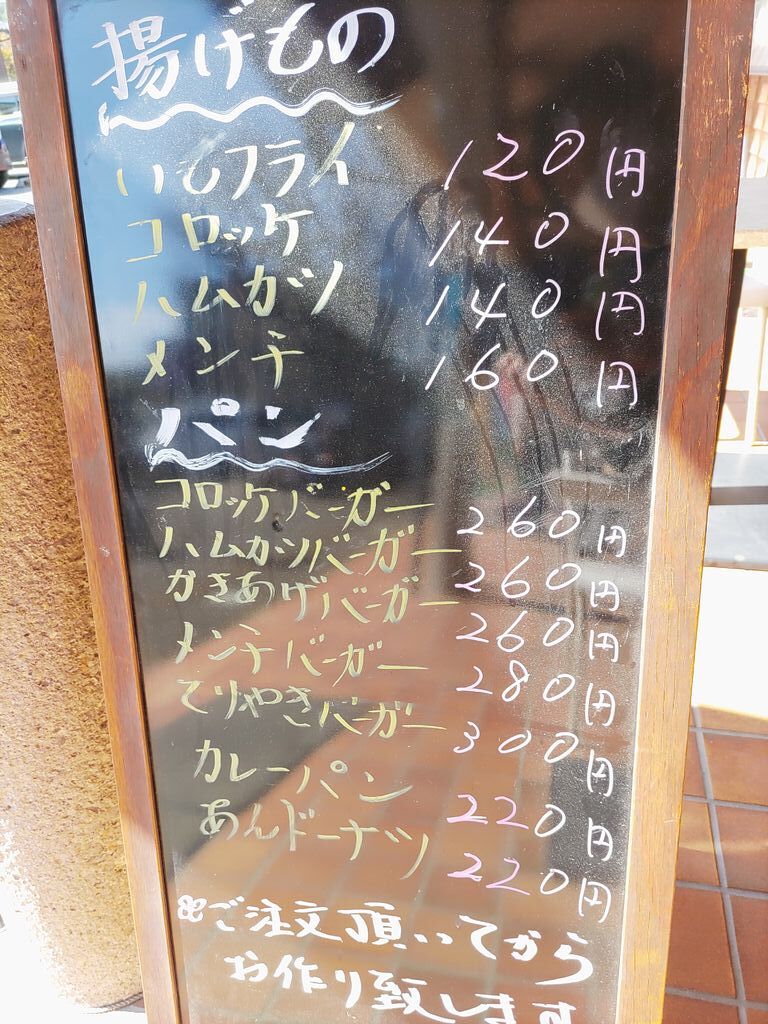 揚げもの
いもフライ 120円
コロッケ 140円
ハムカツ 140円
メンチ 160円
パン
コロッケバーガー 260円
ハムカツバーガー 260円
かきあげバーガー 260円
メンチバーガー 280円
てりやきバーガー 300円
カレーパン 220円
あんドーナツ 220円
※ご注文頂いてから
お作り致します